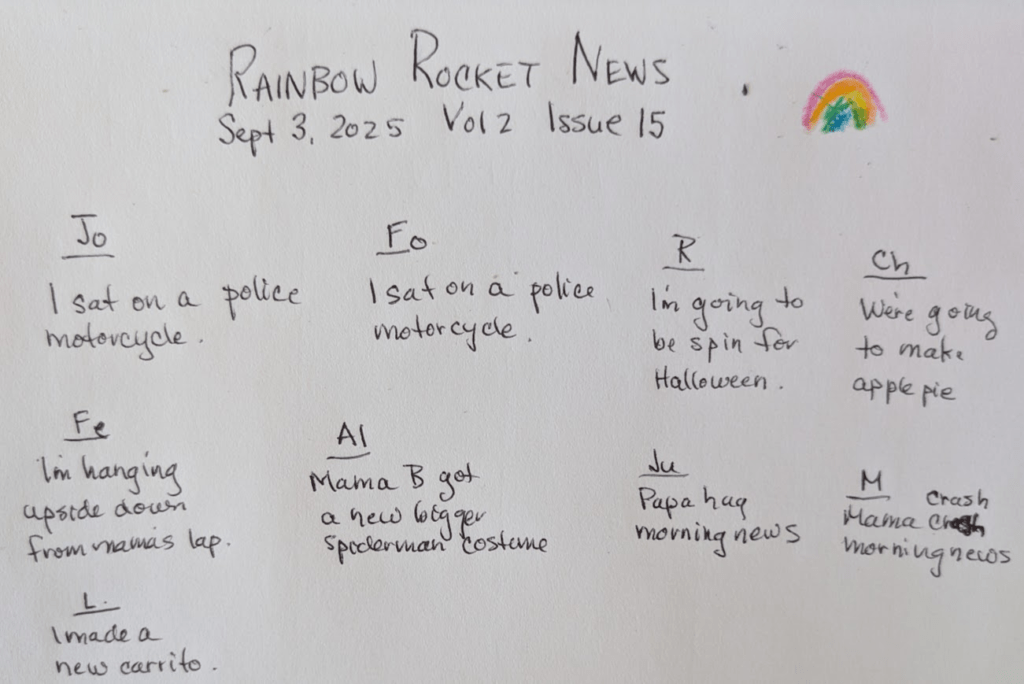 RAINBOW ROCKET NEWS
Sept 3, 2025 Vol 2 Issue 15
Jo
I sat on a police
motorcycle.
Fo
I sat on a police
motorcycle.
R
I'm going to
be spin for
Halloween.
Ch
We're going
to make
apple pie
Fe
I'm hanging
upside down
from mama's lap.
Al
Mama B got
a new bigger
spiderman costume
Ju
Papa hug
morning news
M
Mama crash
morning news
L.
I made a
new carrito.